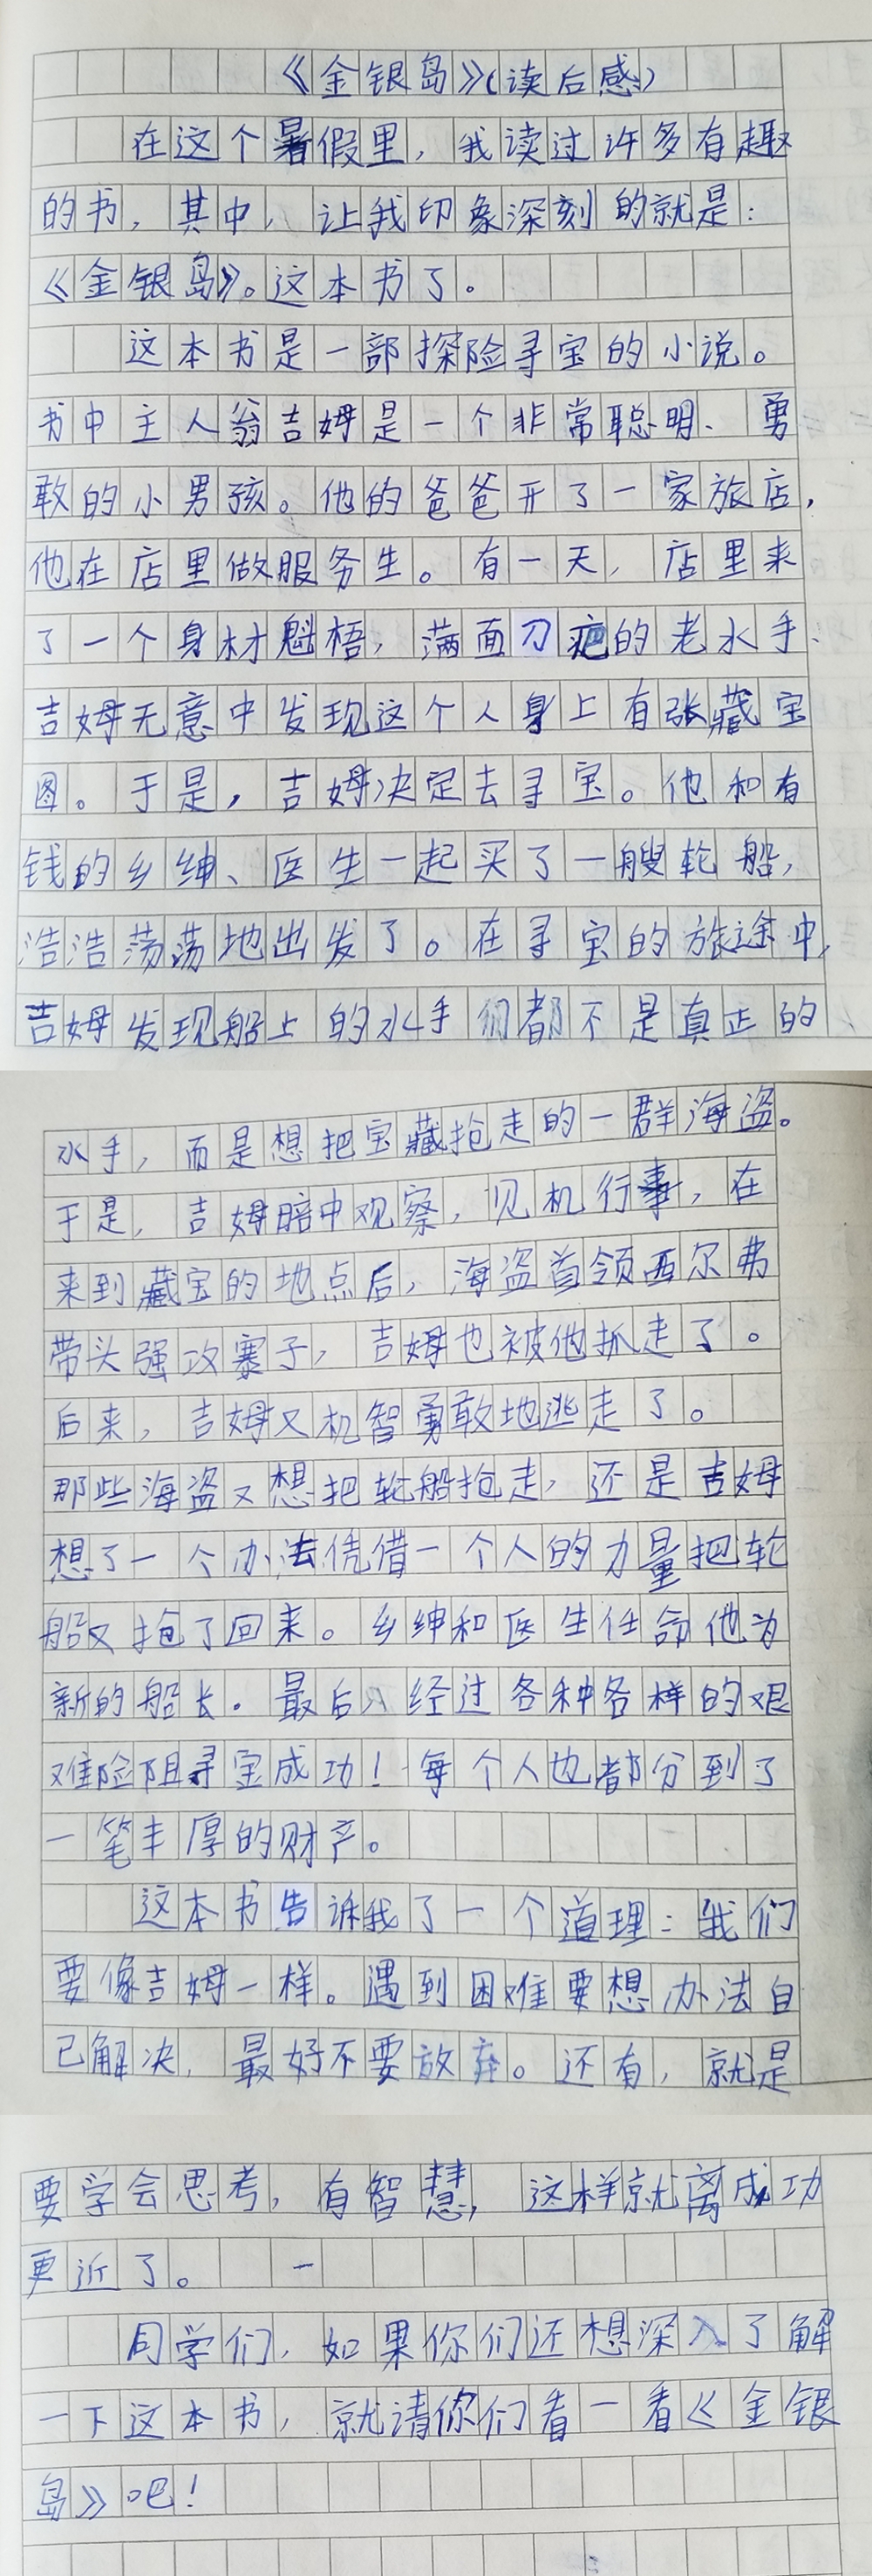 《金银岛》(读后感)
在这个暑假里，我读过许多有趣
的书，其中，让我印象深刻的就是：
《金银岛》。这本书了。
这本书是一部探险寻宝的小说。
书中主人翁吉姆是一个非常聪明、勇
敢的小男孩。他的爸爸开了一家旅店，
他在店里做服务生。有一天，店里来
了一个身材魁梧，满面刀疤的老水手.
吉姆无意中发现这个人身上有张藏宝
图。于是，吉姆决定去寻宝。他和有
钱的乡绅、医生一起买了一艘轮船，
浩浩荡荡地出发了。在寻宝的旅途中，
吉姆发现船上的水手们都不是真正的
水手，而是想把宝藏抢走的一群海盗。
于是，吉姆暗中观察，见机行事，在
来到藏宝的地点后，海盗首领西尔弗
带头强攻寨子，吉姆也被他抓走了。
后来，吉姆又机智勇敢地逃走了。
那些海盗又想把轮船抢走，还是吉姆
想了一个办法凭借一个人的力量把轮
船又抢了回来。乡绅和医生任命他为
新的船长.最后 经过各种各样的艰
难险阻寻宝成功！每个人也都分到了
一笔丰厚的财产。
这本书告诉我了一个道理：我们
要像吉姆一样。遇到困难要想办法自
己解决，最好不要放弃。还有，就是
要学会思考，有智慧，这样就离成功
更近了。
同学们，如果你们还想深入了解
一下这本书，就请你们看一看《金银
岛》吧！